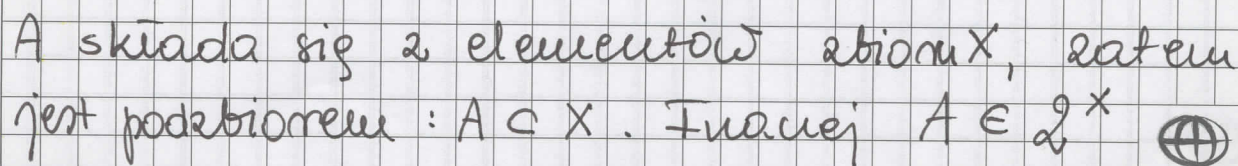 A składa się z elementów zbioru X, zatem
jest podzbiorem : A ⊂ X. Inaczej A ∈ 2^X ⊕